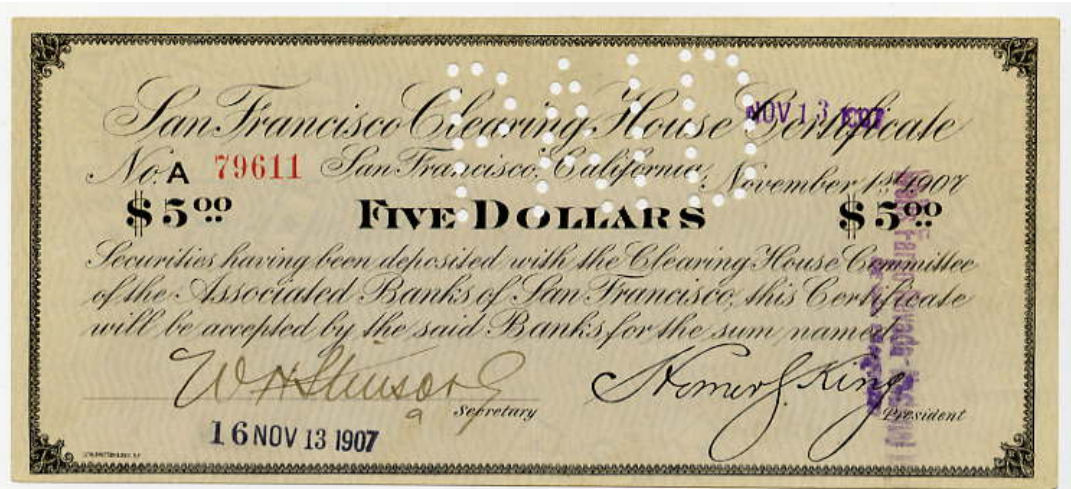 San Francisco Clearing House Certificate
NOV 13 1907
No. A 79611 San Francisco, California, November 1st 1907
$5 00 FIVE DOLLARS $5 00
Securities having been deposited with the Clearing House Committee
of the Associated Banks of San Francisco, this Certificate
will be accepted by the said Banks for the sum named.
Homer S. King
Secretary President
16 NOV 13 1907
PAID